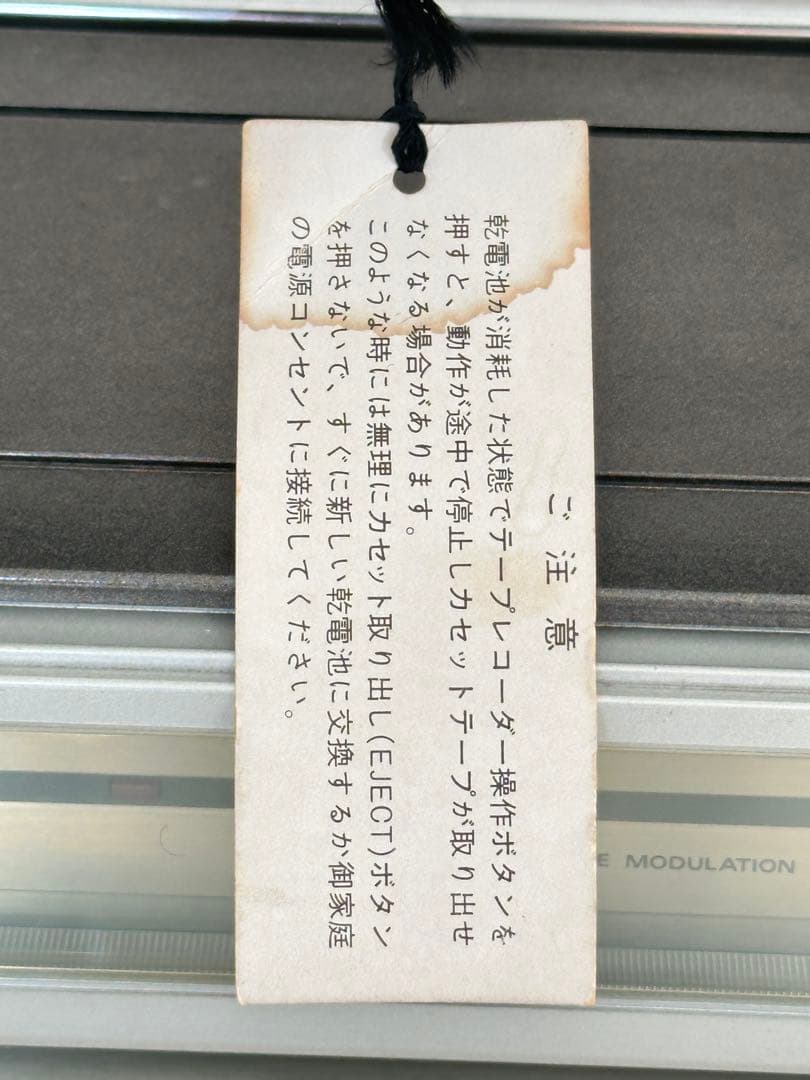 ご注意
乾電池が消耗した状態でテープレコーダー操作ボタンを
押すと、動作が途中で停止しカセットテープが取り出せ
なくなる場合があります。
このような時には無理にカセット取り出し(EJECT)ボタン
を押さないで、すぐに新しい乾電池に交換するか御家庭
の電源コンセントに接続してください。
MODULATION